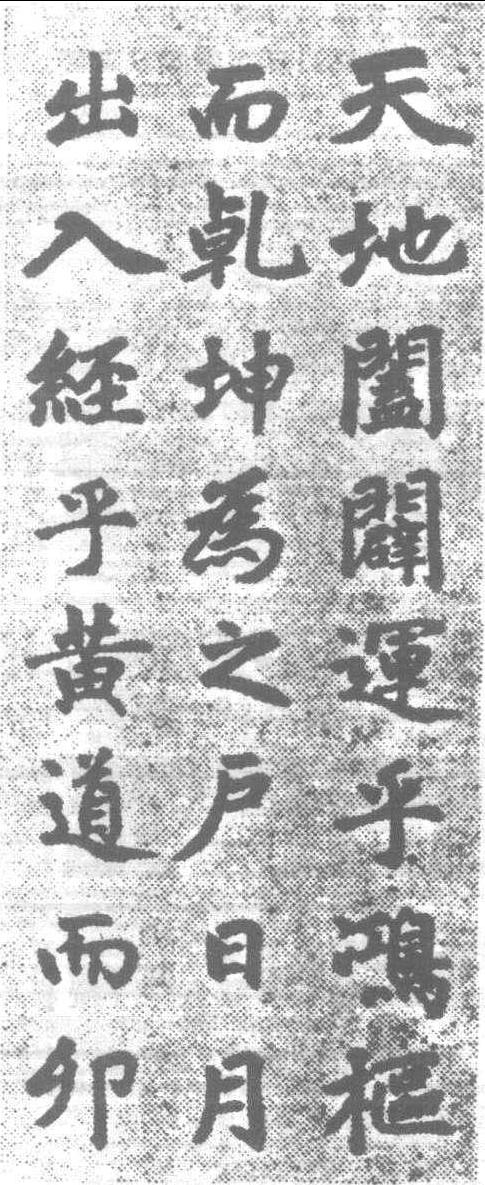 天地闔闢運乎鴻樞
而乹坤為之戶日月
出入経乎黄道而卯